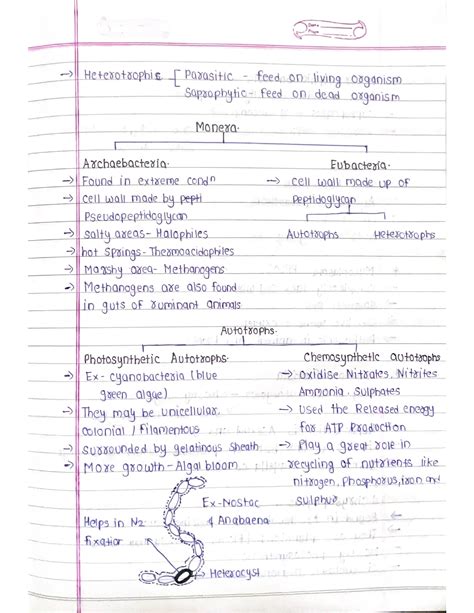 Date
Page
→ Heterotrophic [ Parasitic - feed on living organism
Saprophytic - feed on dead organism
Monera
Archaebacteria. Eubacteria.
→ Found in extreme condn → cell wall made up of
→ cell wall made by pepti Peptidoglycan
Pseudopeptidoglycan
→ salty areas - Halophiles Autotrophs Heterotrophs
→ hot springs - Thermoacidophiles
→ Marshy area - Methanogens
→ Methanogens are also found
in guts of ruminant animals
Autotrophs.
Photosynthetic Autotrophs. Chemosynthetic autotrophs
→ Ex - cyanobacteria (blue → Oxidise Nitrates, Nitrites
green algae) Ammonia, Sulphates
→ They may be unicellular, → Used the Released energy
colonial / Filamentous for ATP Production
→ Surrounded by gelatinous sheath → Play a great role in
→ More growth - Algal bloom recycling of nutrients like
nitrogen, Phosphorus, iron and
sulphur
Ex - Nostoc
& Anabaena
Helps in N2
fixation
→ Heterocyst